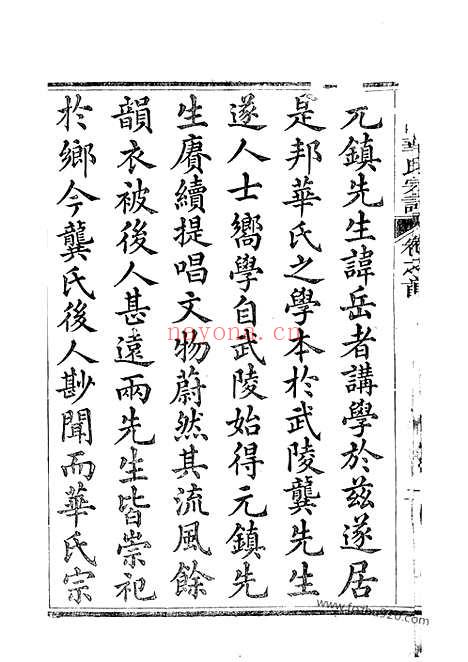 元鎮先生諱岳者講學於兹遂居
是邦華氏之學本於武陵龔先生
遂人士嚮學自武陵始得元鎮先
生賡續提唱文物蔚然其流風餘
韻衣被後人甚遠兩先生皆崇祀
於鄉今龔氏後人尠聞而華氏宗
華氏宗譜 卷之首
nayona.cn